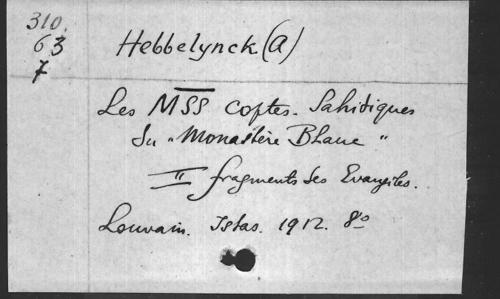 310.
63
7
Hebbelynck (A)
Les MSS coptes. Sahidiques
du "Monastère Blanc"
II fragments des Evangiles.
Louvain. Istas. 1912. 8º